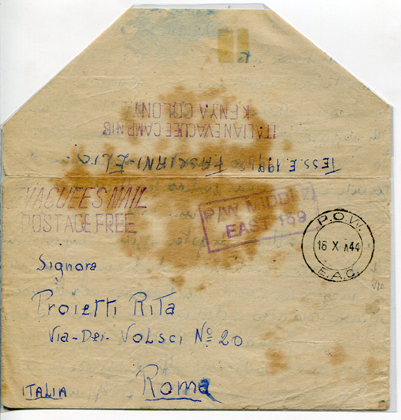 ITALIAN EVACUEE CAMP N.
KENYA COLONY
TESS. E. 1994 FASCIANI-ELIO
EVACUEES MAIL
POSTAGE FREE
P/W MIDDLE
EAST 159
P.O.W.
16 X 44
E.A.C.
Signora
Proietti Rita
Via-Dei-Volsci Nº 20
Roma
ITALIA